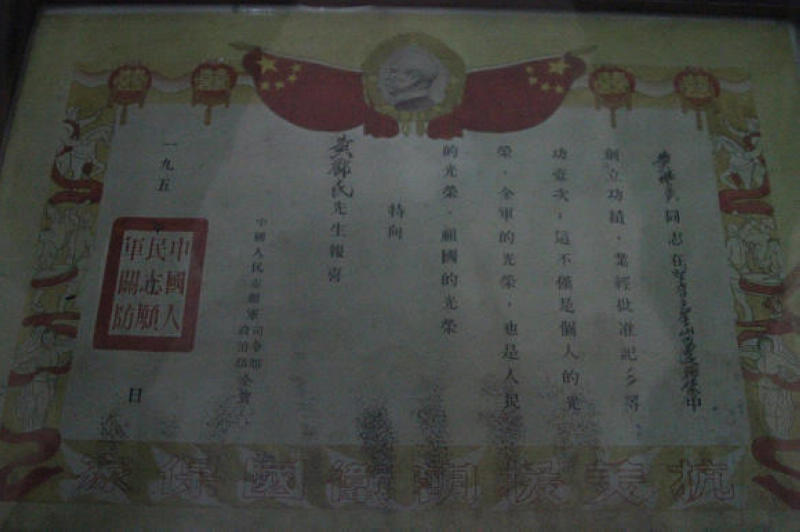 同志在
中
創立功績，業經批准記
功壹次，這不僅是個人的光
榮，全軍的光榮，也是人民
的光榮，祖國的光榮
特向
先生報喜
中國人民志願軍司令部
政治部
一九五 年 日
中國人
民志願
軍關防
抗美援朝衛國保家